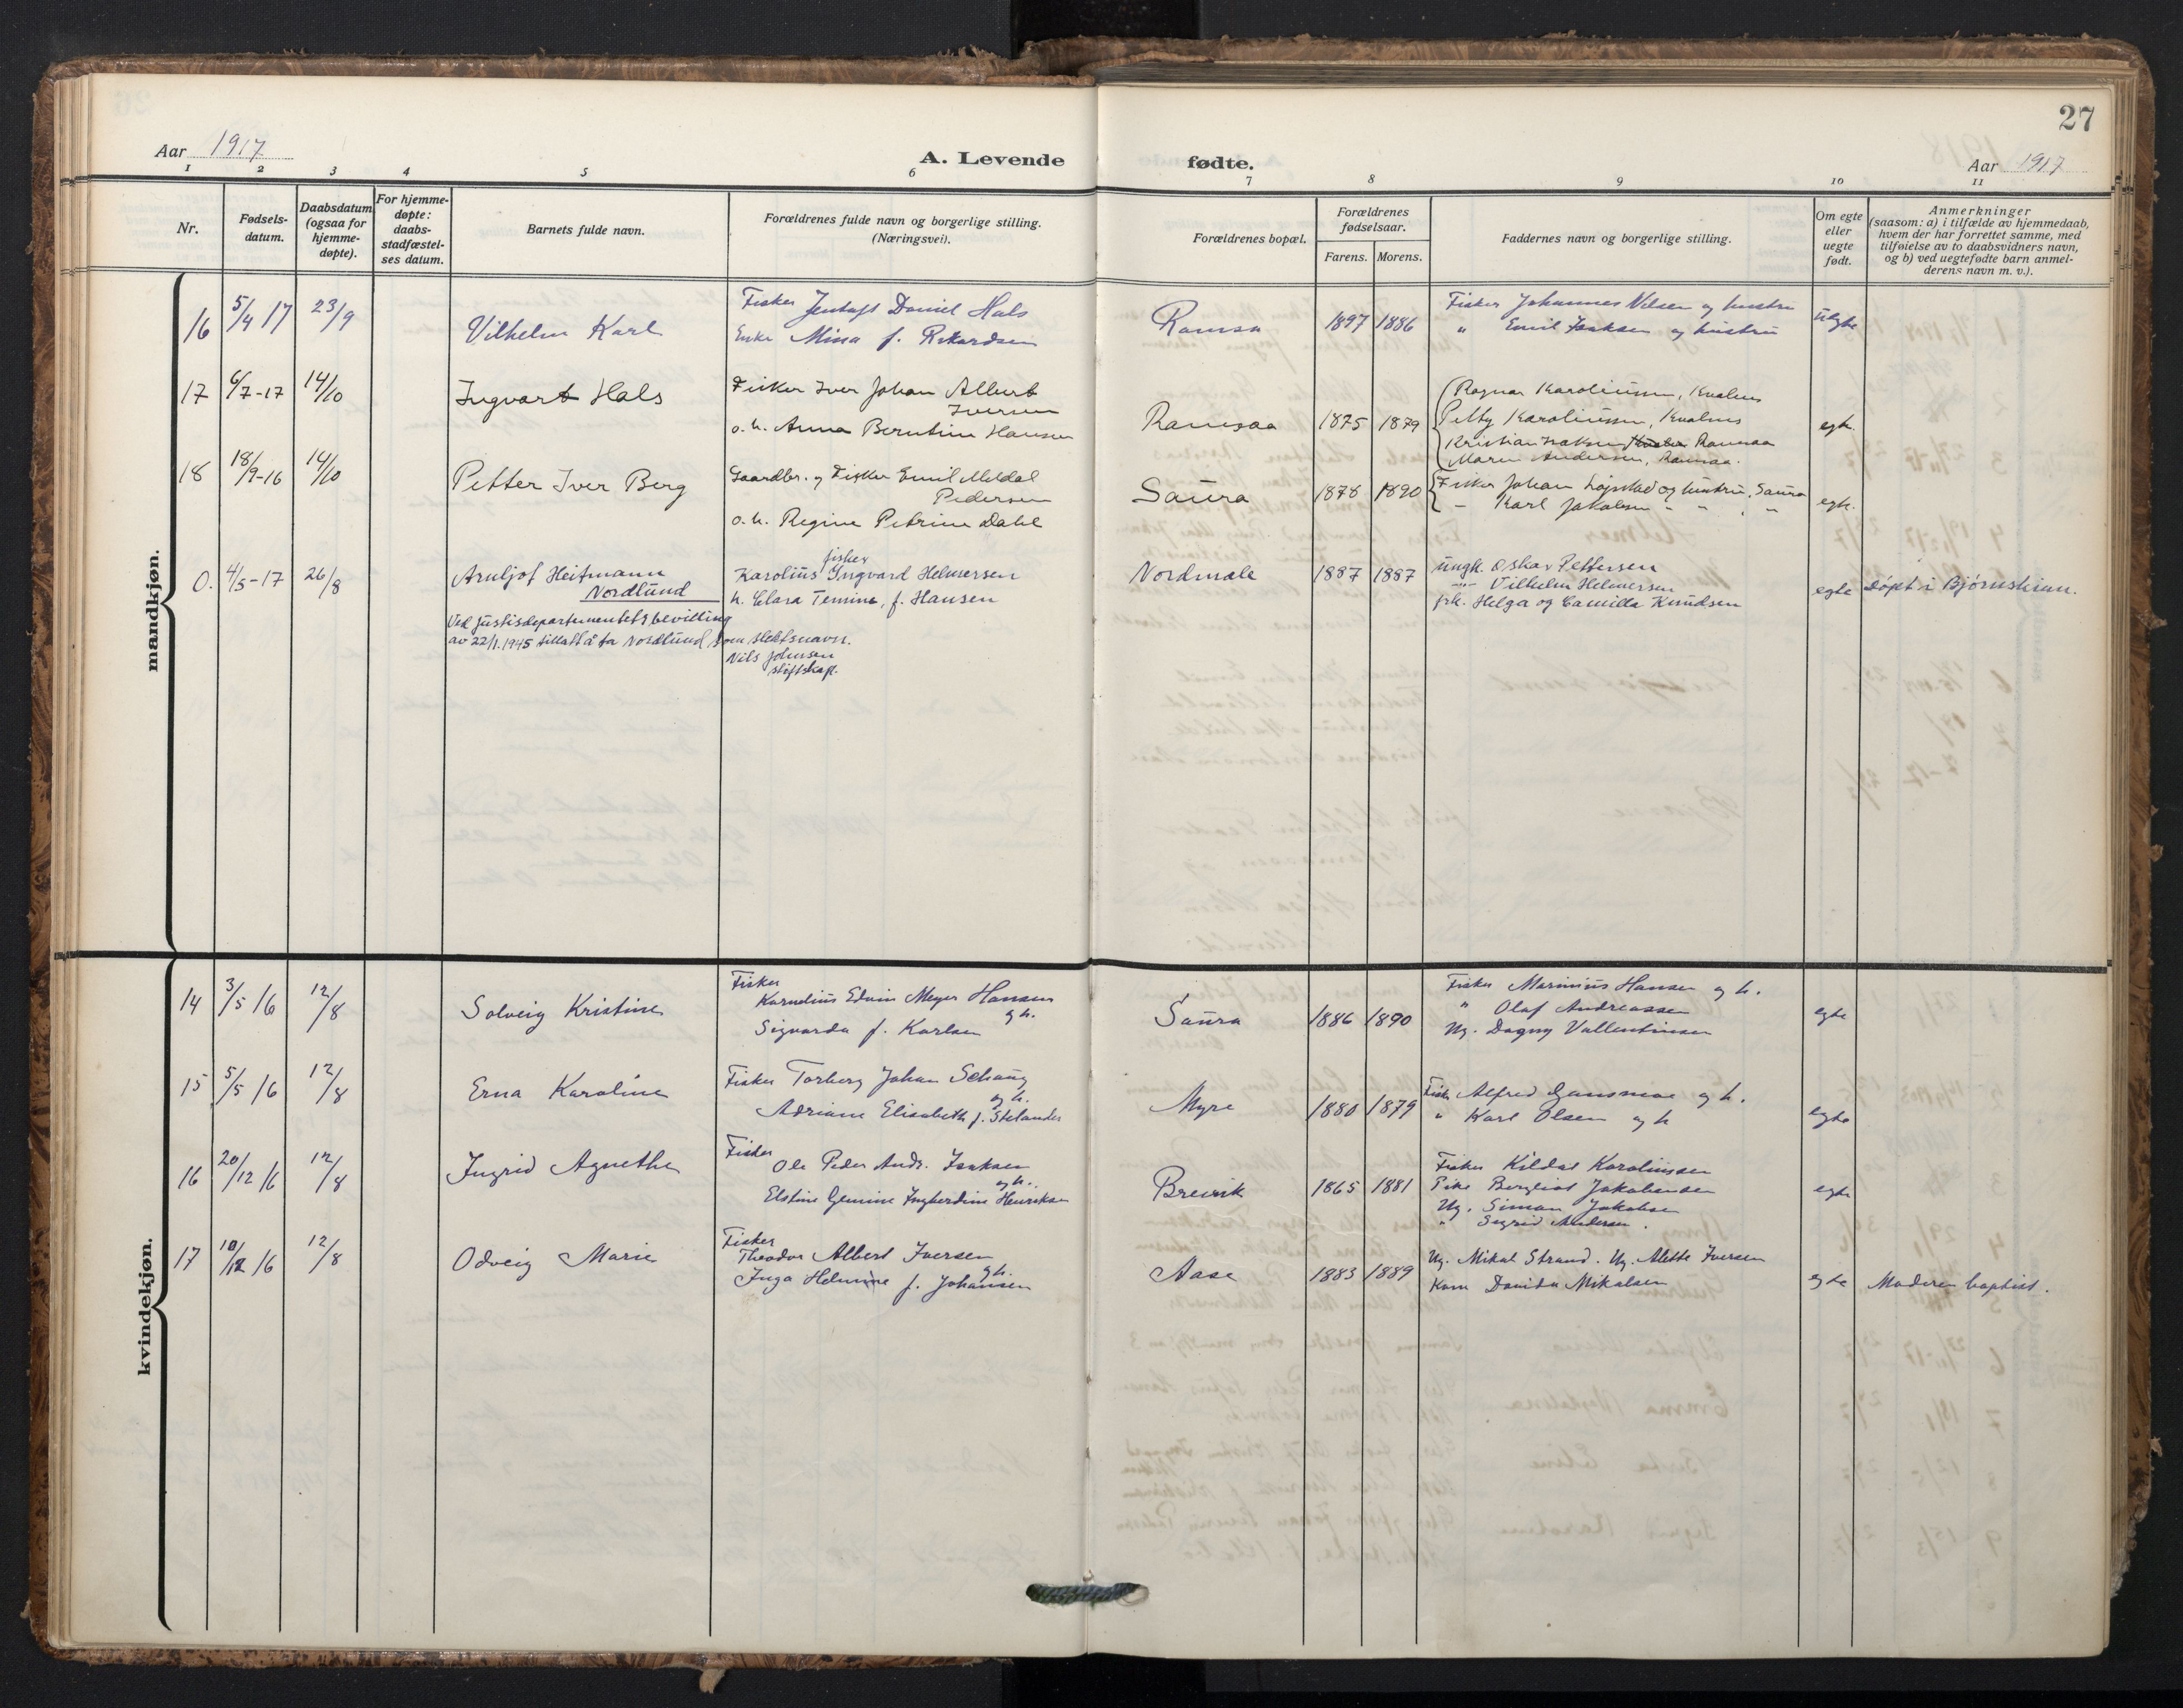 27
Aar 1917
A. Levende
fødte.
Aar 1917
1 2 3 4 5 6 7 8 9 10 11
Nr.
Fødsels-
datum.
Daabsdatum
(ogsaa for
hjemme-
døpte).
For hjemme-
døpte:
daabs-
stadfæstel-
ses datum.
Barnets fulde navn.
Forældrenes fulde navn og borgerlige stilling.
(Næringsvei).
Forældrenes bopæl.
Forældrenes
fødselsaar.
Farens. Morens.
Faddernes navn og borgerlige stilling.
Om egte
eller
uegte
født.
Anmerkninger
(saasom: a) i tilfælde av hjemmedaab,
hvem der har forrettet samme, med
tilføielse av to daabsvidners navn,
og b) ved uegtefødte barn anmel-
derens navn m. v.).
mandkjøn.
16 5/4 17 23/9
Vilhelm Karl
Fisker Daniel Hals
Enke Mina f. Rikardsen
Ramsa
1897 1886
Fisker Johannes Nilsen og hustru
" Emil Isaksen og hustru
uegte
17 6/7-17 14/10
Ingvart Hals
Fisker Iver Johan Albert
Iversen
o. h. Anna Berntine Hansen
Ramsaa
1875 1879
Ragnar Karoliussen, Kvalnes
Petty Karoliussen, Kvalnes
Kristian Isaksen, Ramsaa
Maren Andersen, Ramsaa.
egte.
18 18/9-16 14/10
Petter Iver Berg
Gaardbr. og Fisker Emil Meldal
Pedersen
o. h. Regine Petrine Dahl
Saura
1878 1890
Fisker Johan Løpstad og hustru, Saura
- Karl Jakobsen - - , -
egte.
0. 4/5-17 26/8
Arnljof Heitmann
Nordlund
fisker
Karolius Ingvard Helmersen
h. Clara Temine, f. Hansen
Nordmale
1887 1887
ungk. Oskar Pettersen
-"- Vilhelm Helmersen
frk. Helga og Camilla Knudsen
egte
døpt i Bjørnskinn.
Ved Justisdepartementets bevilling
av 22/1.1945 tillatt å ta Nordlund som slektsnavn.
Nils Johnsen
stiftskap.
kvindekjøn.
14 3/5 16 12/8
Solveig Kristine
Fisker
Kornelius Edvin Meyer Hansen
og h.
Sigvarda f. Karlsen
Saura
1886 1890
Fisker Marinius Hansen og h.
" Olaf Andreassen
Ug. Dagny Vallentinsen
egte
15 5/5 16 12/8
Erna Karoline
Fisker Torberg Johan Schaug
og h.
Adriane Elisabeth f. Stelander
Myre
1880 1879
Fisk. Alfred Gansmoe og h.
" Karl Olsen og h
egte
16 20/12 16 12/8
Ingrid Agnethe
Fisker
Ole Peder Andr. Isaksen
og h.
Elstine Gemine Ingberdine Henriksen
Breivik
1865 1881
Fisker Kildal Karoliussen
Pike Bergliot Jakobsen
Ug. Simon Jakobsen
" Sigrid Andersen.
egte
17 10/12 16 12/8
Odveig Marie
Fisker
Theodor Albert Iversen
og h.
Inga Helmine f. Johansen
Aase
1883 1889
Ug. Mikal Strand. Ug. Alette Iversen
Kone Davida Mikalsen
egte
Moderen baptist.